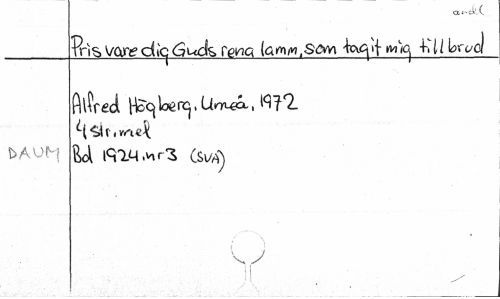 andl
Pris vare dig Guds rena lamm, som tagit mig till brud
Alfred Högberg, Umeå, 1972
4 str. mel
DAUM Bd 1924. nr 3 (SVA)